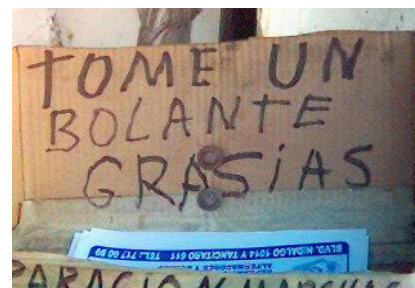 TOME UN
BOLANTE
GRASiAS
BLVD. HIDALGO 1014 Y TANCITARO 611 TEL.: 717 00 99